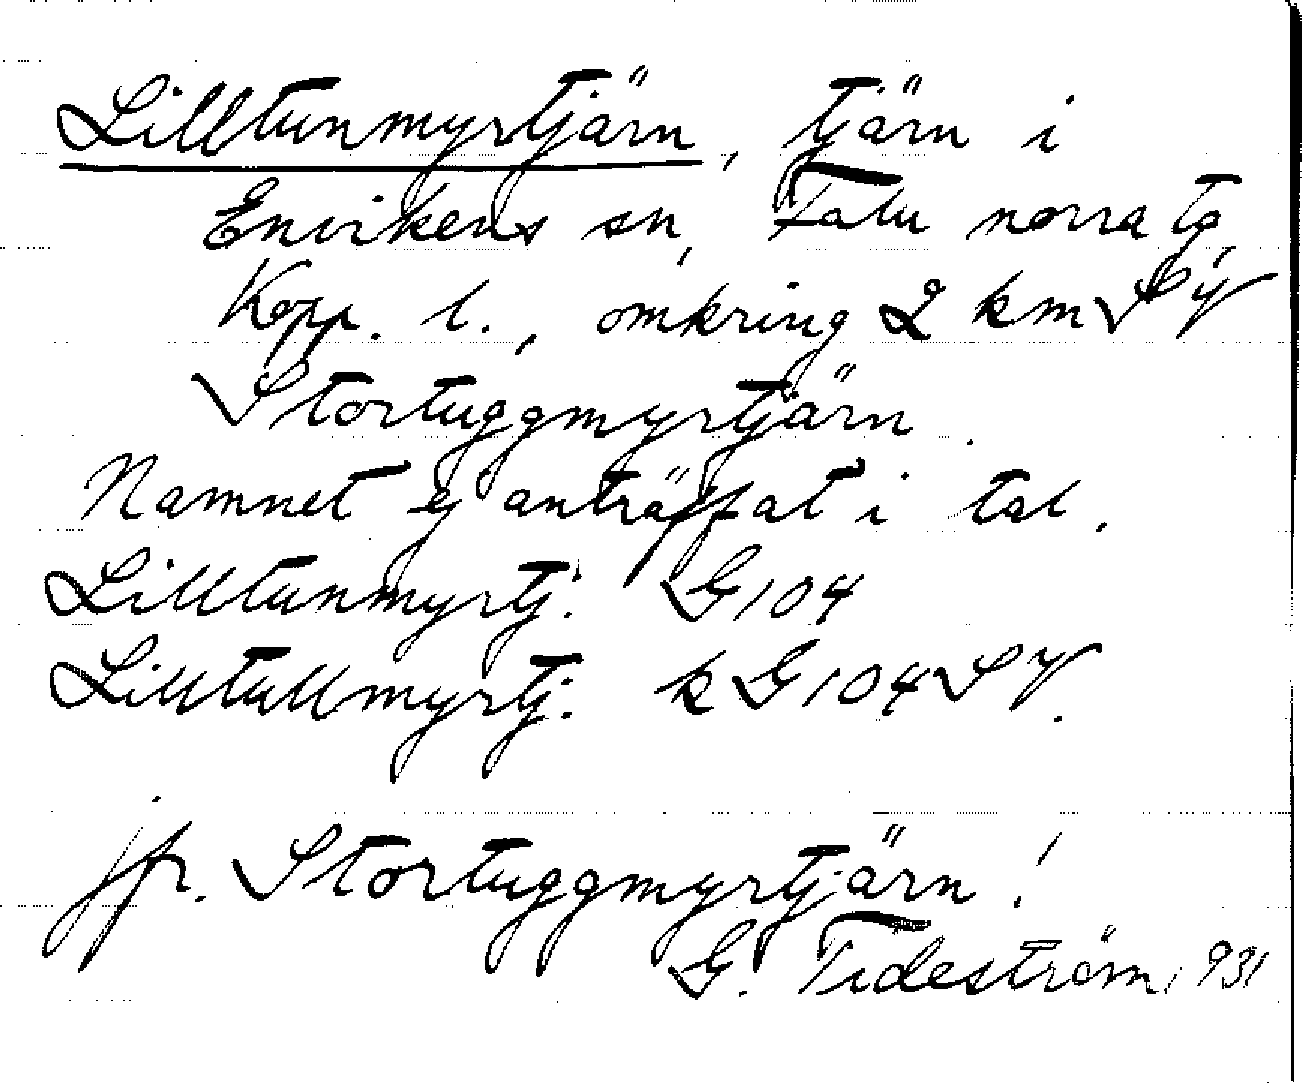 Lilltunmyrtjärn, tjärn i
Envikens sn, Falu norra tg,
Kopp. l., omkring 2 km SV
Stortuggmyrtjärn.
Namnet ej anträffat i tal.
Lilltunmyrtj: G104
Lilltullmyrtj: k G104SV.
jfr. Stortuggmyrtjärn!
G. Tideström 1931